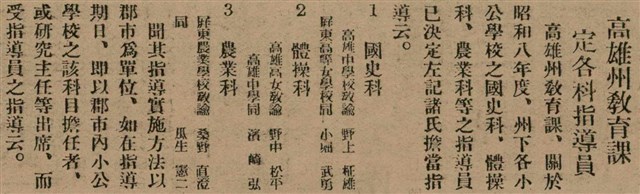 高雄州敎育課
定各科指導員
高雄州敎育課、關於
昭和八年度、州下各小
公學校之國史科、體操
科、農業科等之指導員
已決定左記諸氏擔當指
導云。
1 國史科
高雄中學校敎諭 野上 雄
屏東高等女學校同 小堀 武勇
2 體操科
高雄高女敎諭 野中 松平
高雄中學同 濱崎 弘
3 農業科
屏東農業學校敎諭 桑野 直澄
同 瓜生 憲二
聞其指導實施方法以
郡市爲單位、如在指導
期日、即以郡市內小公
學校之該科目擔任者、
或硏究主任等出席、而
受指導員之指導云。